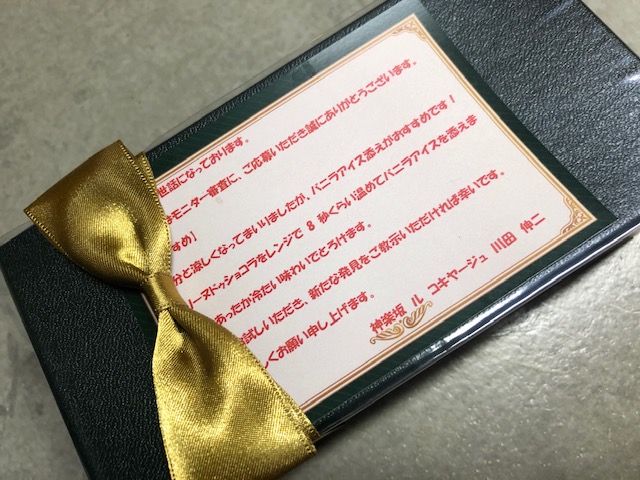 世話になっております。
モニター審査に、ご応募いただき誠にありがとうございます。
すめ】
かと涼しくなってまいりましたが、バニラアイス添えがおすすめです！
リーヌドゥショコラをレンジで 8 秒くらい温めてバニラアイスを添えま
あったか冷たい味わいでとろけます。
試しいただき、新たな発見をご教示いただければ幸いです。
しくお願い申し上げます。
神楽坂 ル コキヤージュ 川田 伸二